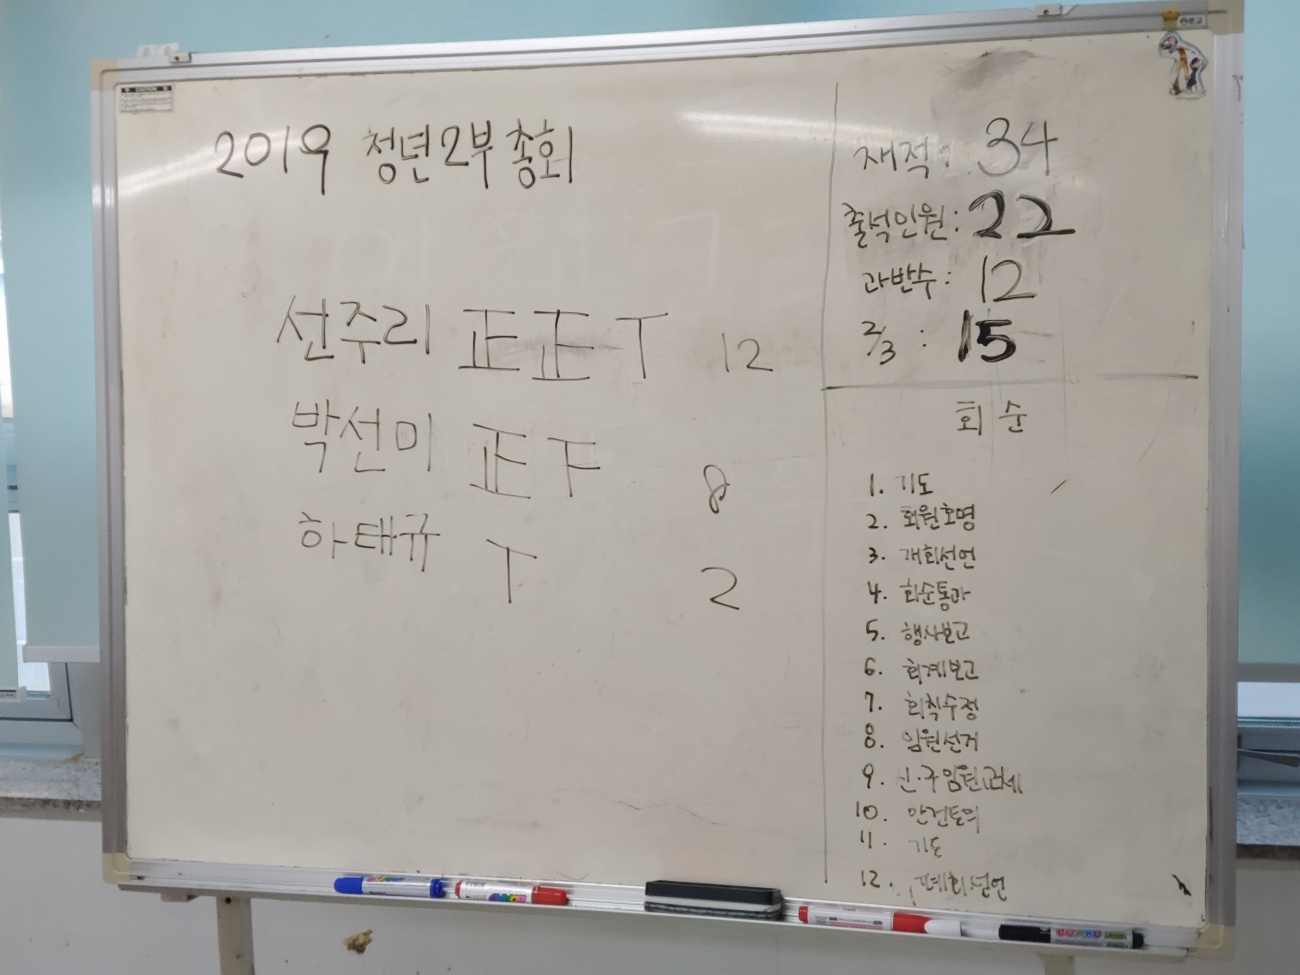 2019 청년2부 총회
선주리 正 正 丅 12
박선미 正 下 8
하태규 丅 2
재적: 34
출석인원: 22
과반수: 12
2/3: 15
회순
1. 기도
2. 회원호명
3. 개회선언
4. 회순통과
5. 행사보고
6. 회계보고
7. 회칙수정
8. 임원선거
9. 신·구임원교체
10. 안건토의
11. 기도
12. 폐회선언
CAUTION